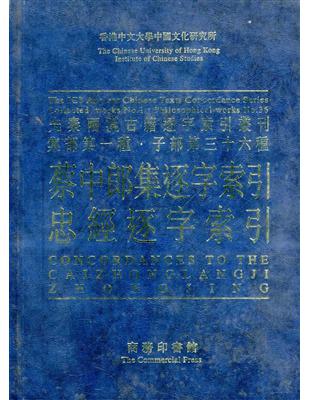 香港中文大學中國文化研究所
The Chinese University of Hong Kong
Institute of Chinese Studies
The ICS Ancient Chinese Texts Concordance Series
Collected works No.1 : Philosophical works No.36
先秦兩漢古籍逐字索引叢刊
集部第一種・子部第三十六種
蔡中郎集逐字索引
忠經逐字索引
CONCORDANCES TO THE
CAIZHONGLANGJI
ZHONGJING
商務印書館
The Commercial Press